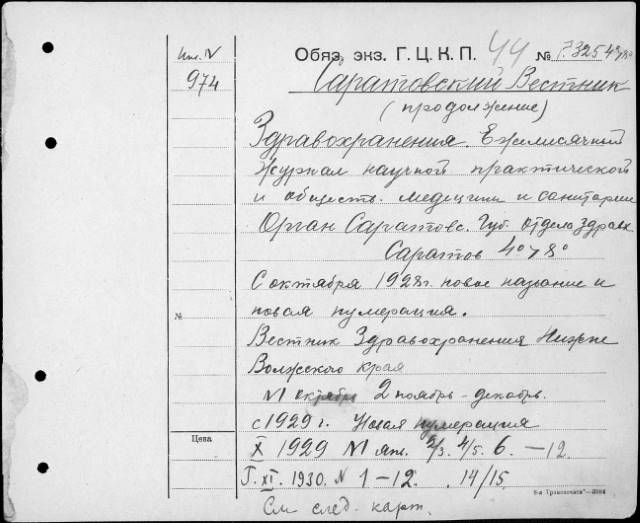 Инв. IV
974
Обяз. экз. Г.Ц.К.П. 44 № 73254
Саратовский Вестник
(продолжение)
Здравохранения. Ежемесячный
журнал научной практической
и обществ. медицины и санитарии
Орган Саратовс. Губ. отдела здравх
Саратов 4° у 8°
С октября 1928г. новое название и
новая нумерация.
№
Вестник Здравохранения Нижне
Волжского края
№ октябрь 2 ноябрь - декабрь.
с 1929 г. Новая нумерация
Цена
X 1929 № янв. 2/3. 4/5. 6. – 12.
Г. XI. 1930. № 1–12. .14/15.
См след. карт.